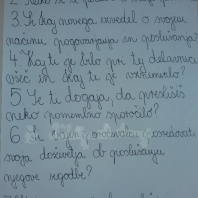 3. Si kaj novega izvedel o svojem
načinu pogovarjanja in poslušanja?
4. Kaj ti je bilo pri tej delavnici
všeč in kaj ti je
5. Se ti dogaja, da presliš
neko pomembno sporočilo?
6. posredovati
svoja doživetja ob poslušanju
njegove zgodbe?